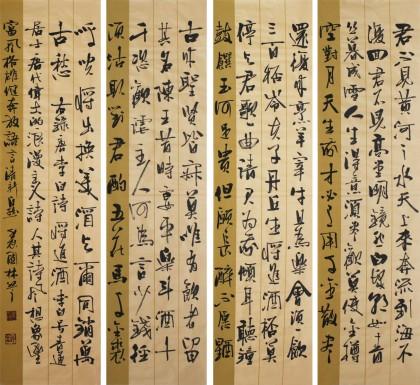 君不見黃河之水天上來奔流到海不
復回君不見高堂明鏡悲白髮朝如青
絲暮成雪人生得意須盡歡莫使金樽
空對月天生我才必有用千金散盡
還復來烹羊宰牛且為樂會須一飲
三百杯岑夫子丹丘生將進酒杯莫
停與君歌一曲請君為我側耳聽鐘
鼓饌玉何足貴但願長醉不願醒
古來聖賢皆寂寞唯有飲者留
其名陳王昔時宴平樂斗酒十
千恣歡謔主人何為言少錢徑
須沽取對君酌五花馬千金裘
呼兒將出換美酒與爾同銷萬
古愁 右錄唐李白詩將進酒李白号青蓮
居士唐代偉大的浪漫主义詩人其詩想象豐
富風格雄健奔放語言清新